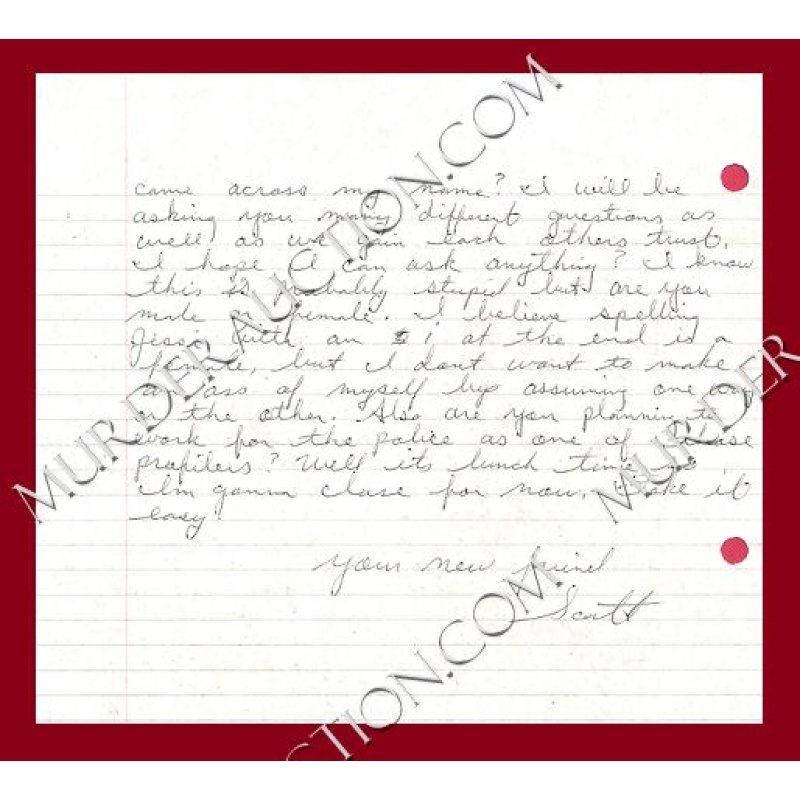 came across my name? I will be
asking you many different questions as
well as we gain each others trust.
I hope I can ask anything? I know
this is probably stupid but are you
male or female. I believe spelling
Jessi with an i at the end is a
female, but I dont want to make
an ass of myself by assuming one way
or the other. Also are you planning to
work for the police as one of those
profilers? Well its lunch time so
Im gonna close for now. Take it
easy!
your new friend
Scott
MURDERAUCTION.COM
MURDER
CTION.COM